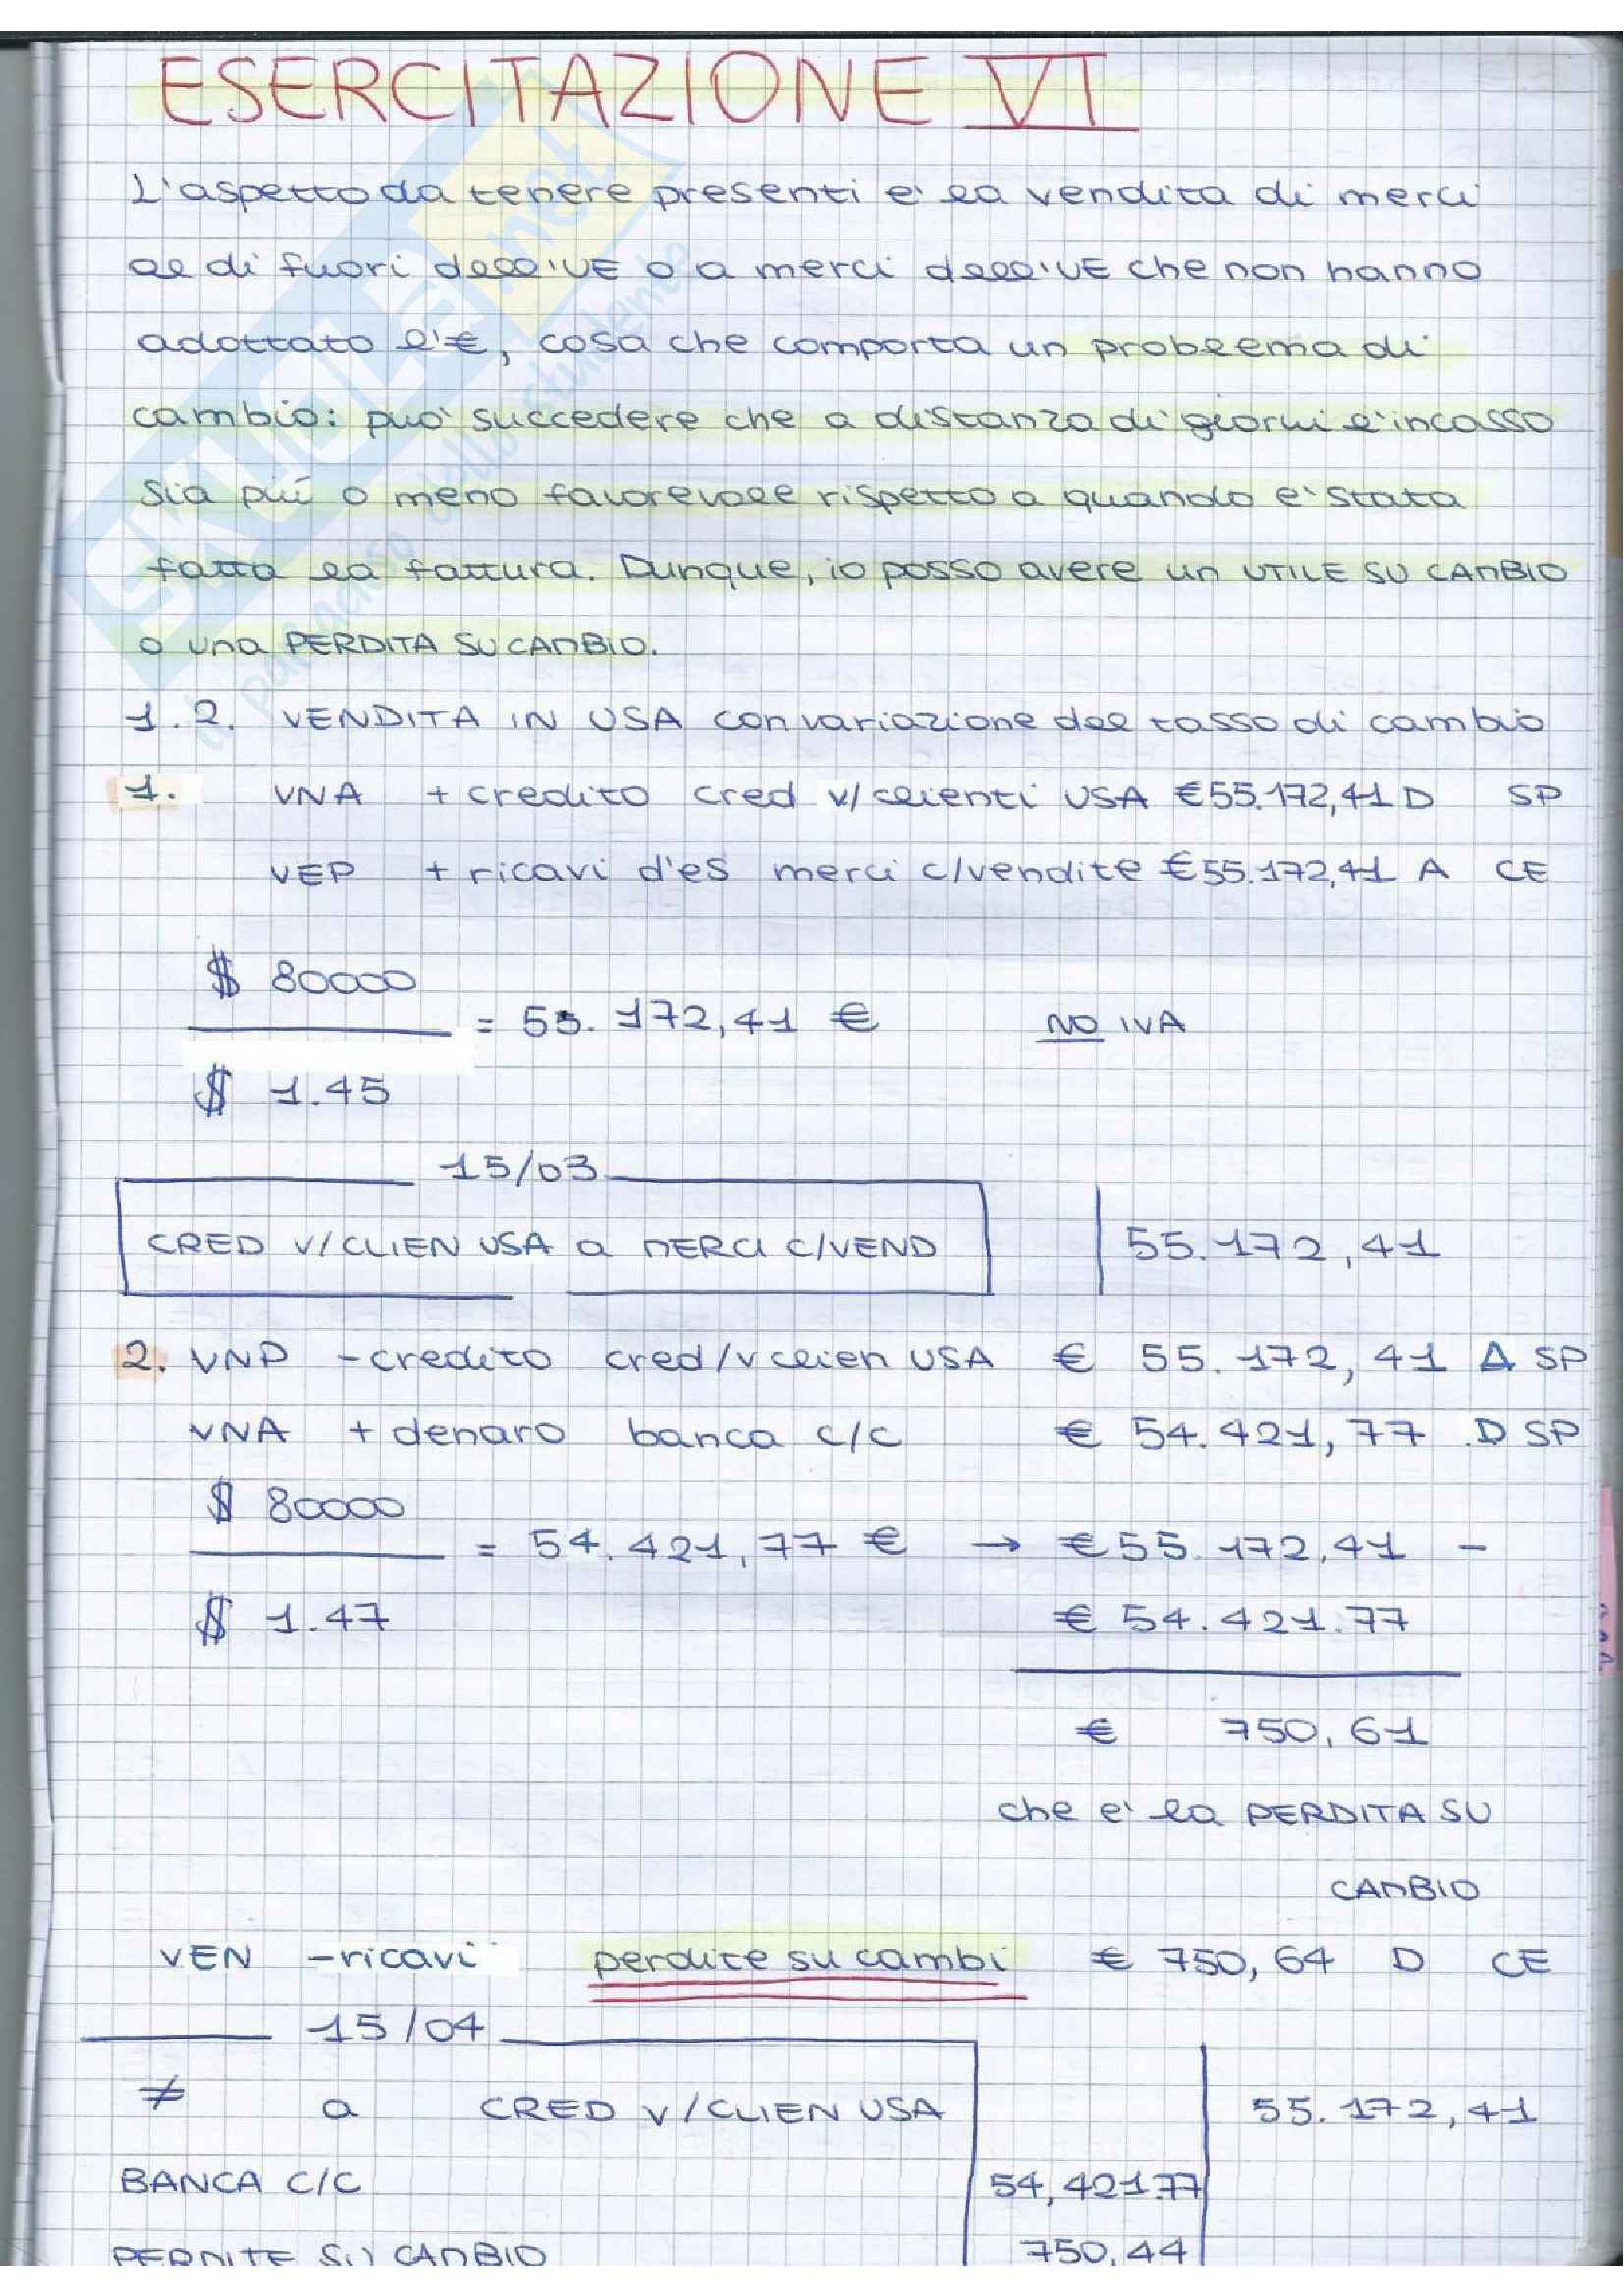 ESERCITAZIONE VI
L'aspetto da tenere presenti e' la vendita di merci
al di fuori dell'UE o a merci dell'UE che non hanno
adottato l'€, cosa che comporta un problema di
cambio: puo' succedere che a distanza di giorni l'incasso
sia piú o meno favorevole rispetto a quando e' stata
fatta la fattura. Dunque, io posso avere un UTILE SU CAMBIO
o una PERDITA SU CAMBIO.
1.2. VENDITA IN USA con variazione del tasso di cambio
1. VNA + credito cred v/clienti USA €55.172,41 D SP
VEP + ricavi d'es merci c/vendite €55.172,41 A CE
$ 80000
= 55.172,41 € NO IVA
$ 1.45
15/03
CRED V/CLIEN USA a MERCI C/VEND 55.172,41
2. VNP - credito cred/v clien USA € 55.172,41 A SP
VNA + denaro banca c/c € 54.421,77 D SP
$ 80000
= 54.421,77 € → € 55.172,41 -
$ 1.47 € 54.421.77
€ 750,61
che e' la PERDITA SU
CAMBIO
VEN - ricavi perdite su cambi € 750,64 D CE
15/04
≠ a CRED V/CLIEN USA 55.172,41
BANCA C/C 54,421.77
PERDITE SU CAMBIO 750,44
SKUOLA.net
il paradiso dello studente